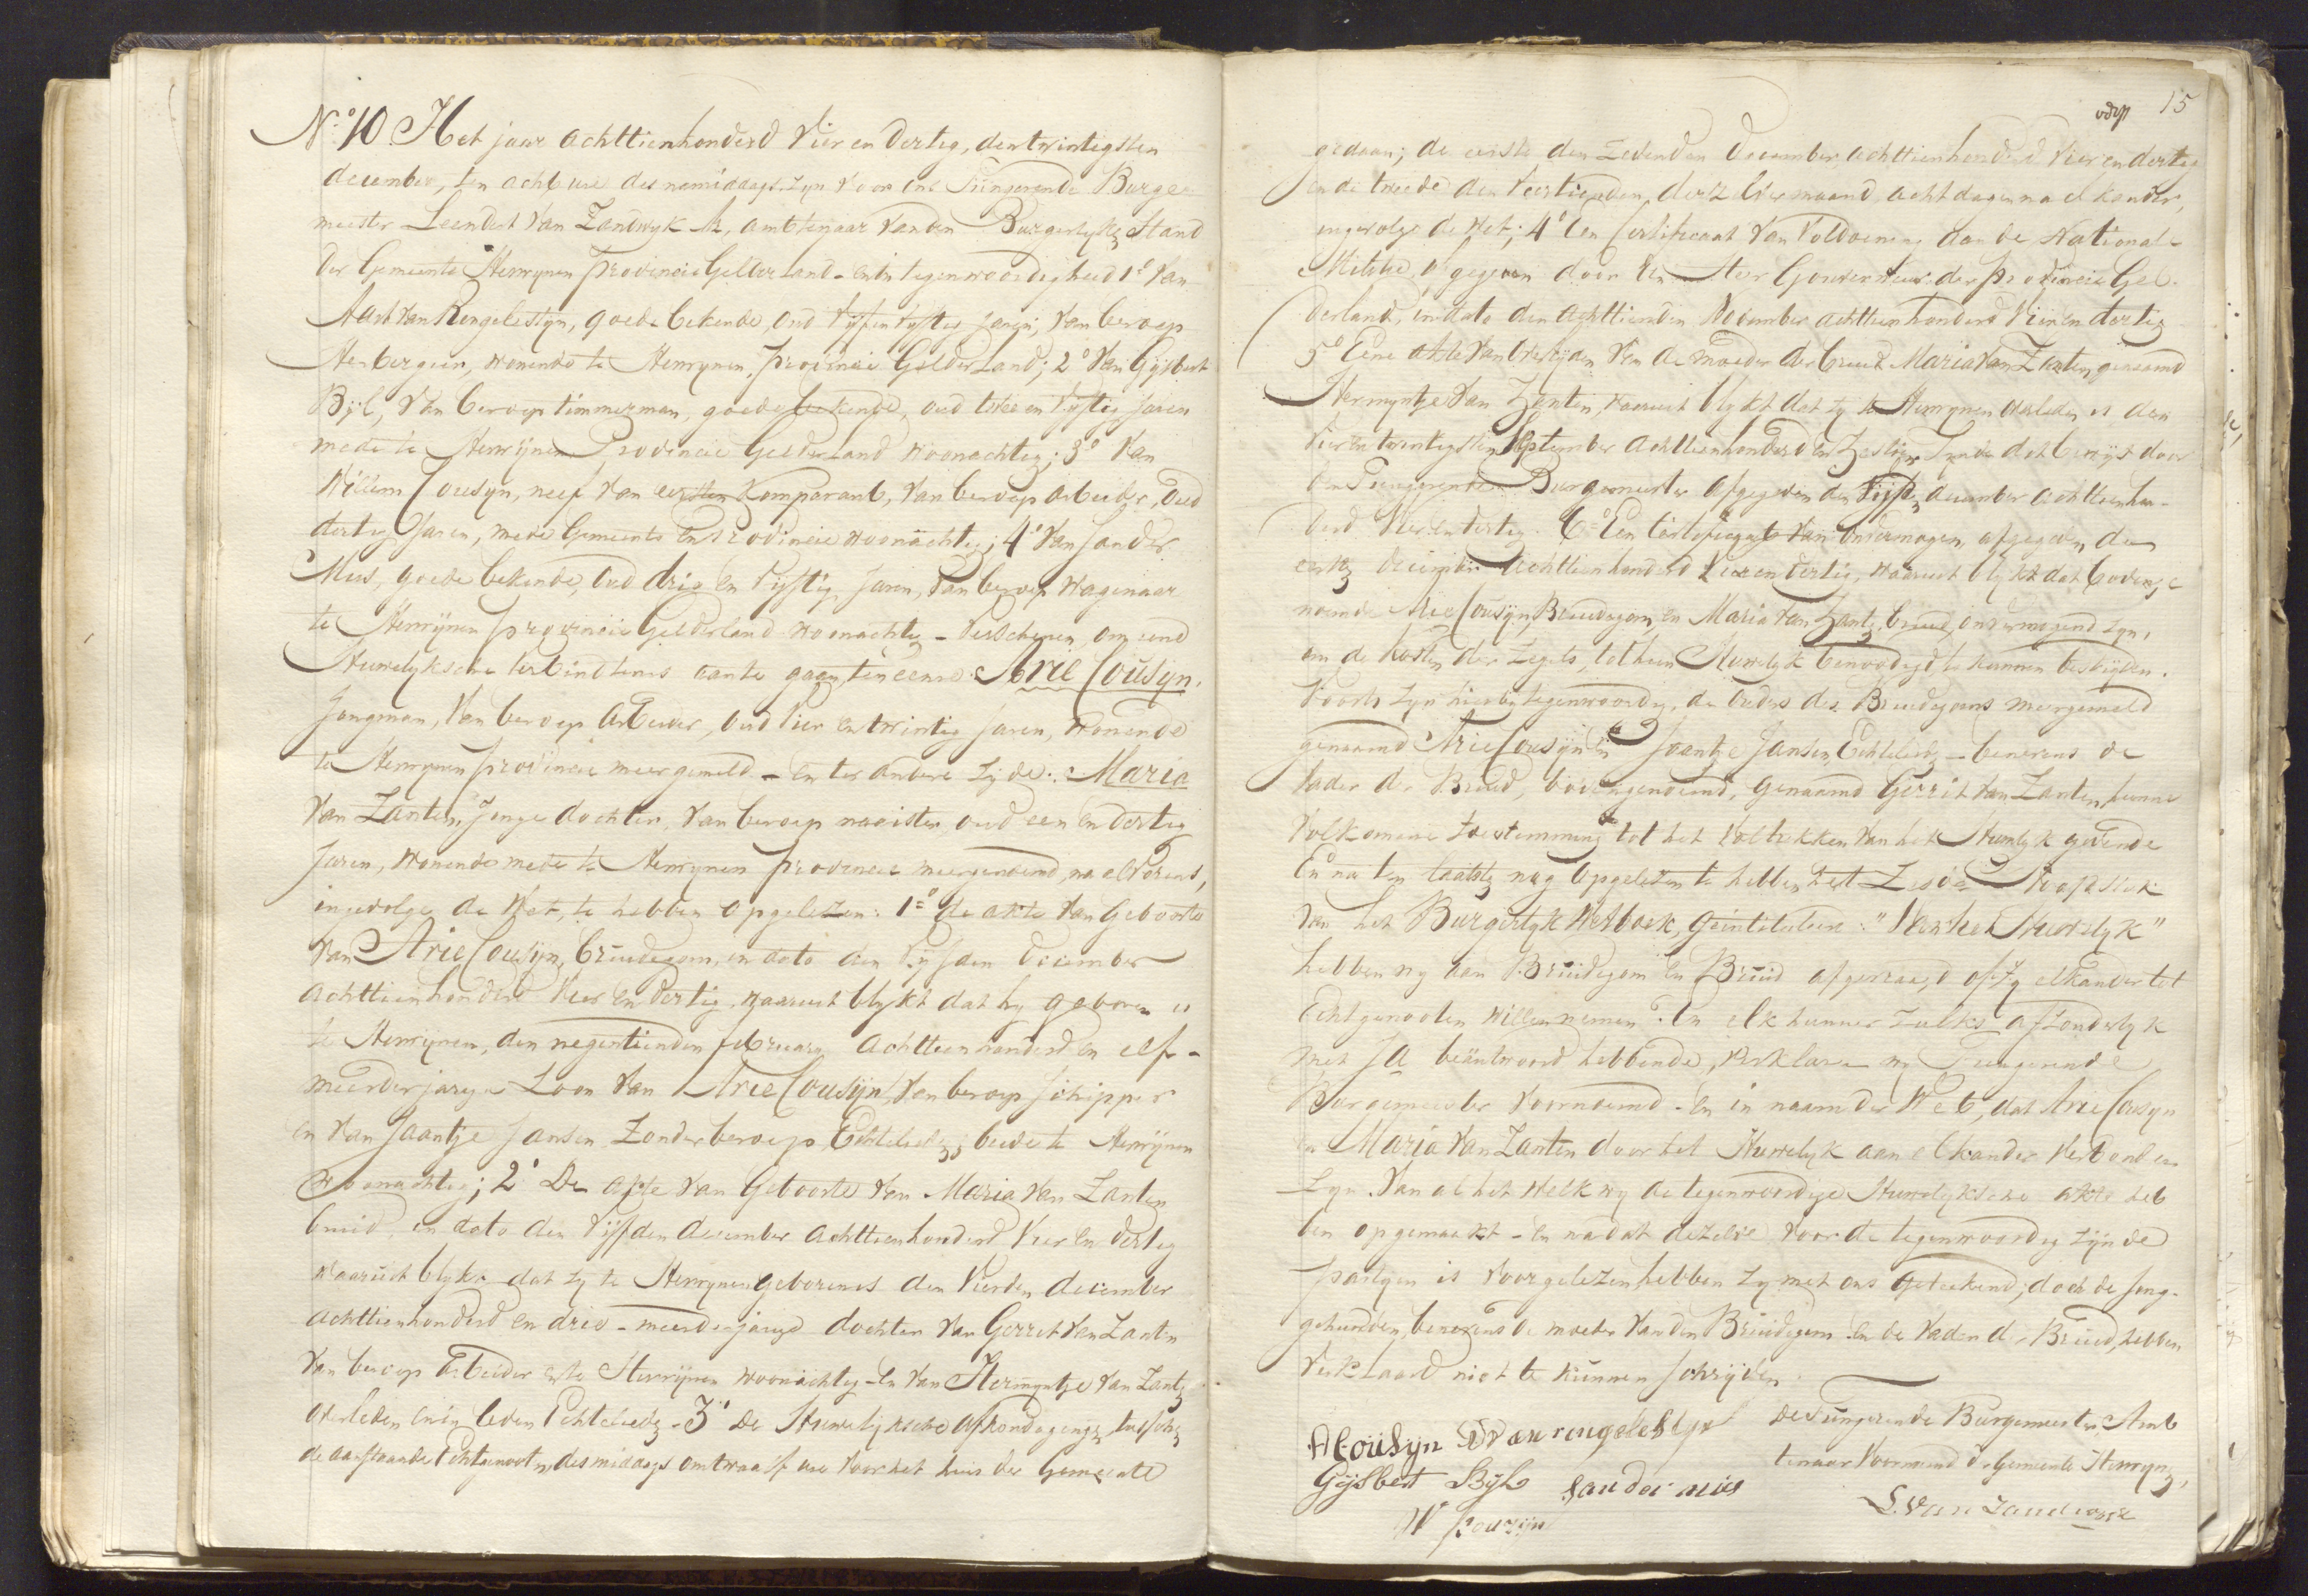 No 10. Het jaar achttienhonderd Vier en dertig, den twintigsten
december, ten acht ure des namiddags, zyn voor ons Fungerende Burge-
meester Leendert Van Zandwyk, ambtenaar van den Burgerlyke Stand
der Gemeente Herwynen provincie Gelderland - en in tegenwoordigheid 1o Van
Aart Van Ringelestyn, goede bekende, oud Vyf en Vyftig Jaren, van beroep
Herbergier, wonende te Herwynen, provincie Gelderland; 2o Van Gysbert
Byl, Van beroep timmerman, goede bekende, oud twee en vyftig Jaren
mede te Herwijnen Provincie Gelderland woonachtig; 3o Van
Willem Cousyn, neef van eersten Komparant, van beroep arbeider, oud
dertig Jaren, mede Gemeente en Provincie woonachtig; 4o Van Sander
Mus, goede bekende, oud drie en Vyftig Jaren, van beroep Wagenaar
te Herwijnen provincie Gelderland woonachtig - Verschenen, om eene
Huwelyksche verbindtenis aan te gaan, ten eenre Arie Cousyn.
Jongman, Van beroep arbeider, oud Vier en twintig Jaren, Wonende
te Herwynen provincie meergemeld - en ter andere zyde: Maria
Van Zanten, Jonge dochter, van beroep naaister, oud een en dertig
Jaren, Wonende mede te Herwynen provincie meergenoemd, na alvorens,
ingevolge de Wet, te hebben opgelezen: 1o de akte van geboorte
van Arie Cousyn, bruidegom, in dato den Vyfden December
achttienhonderd Vier en dertig, waaruit blykt dat hy geboren is
te Herwijnen, den negentienden februarij achttienhonderd en elf -
meerderjarige Zoon van Arie Cousijn, Van beroep schipper
en van Jaantje Jansen Zonder beroep, Echtelieden, beide te Herwijnen
woonachtig; 2o De akte van Geboorte van Maria Van Zanten
bruid, in dato den Vyfden december achttienhonderd Vier en dertig
waaruit blykt dat zy te Herwynen geboren is den Vierden december
achttienhonderd en drie - meerderjarige dochter Van Gerrit Van Zanten
Van beroep Arbeider en te Herwijnen woonachtig - en van Hermyntje van Zanten
overleden in leven Echtelieden - 3o De Huwelijksche afkondigingen, tusschen
de aanstaande Echtgenooten, des middags om twaalf ure voor het huis der Gemeente
15
gedaan; de eerste den zevenden December achttienhonderd Vier en dertig
en de tweede den Veertienden derzelver maand, acht dagen na elkander,
ingevolge de Wet; 4o Een Certificaat van Voldoening aan de Nationale
Militie, afgegeven door den Heer Gouverneur der provincie Gel-
derland, in dato den achttienden November achttienhonderd Vier en dertig
5o Eene akte van overlijden van de moeder der bruid Maria Van Zanten, genaamd
Hermyntje Van Zanten, waaruit blykt dat zy te Herwynen overleden is den
Vier en twintigsten September achttienhonderd en Zestien, zynde dat bewijs door
den Fungerenden Burgemeester afgegeven den Vijfden december achttienhon-
derd Vier en dertig. 6o Een Certificaat van Onvermogen, afgegeven den
eersten december achttienhonderd Vier en dertig, waaruit blykt dat bovenge
noemde Arie Cousijn, Bruidegom, en Maria Van Zanten, bruid, onvermogend zyn,
om de kosten der Zegels, tot hun Huwelyk benoodigd te kunnen bestryden.
Voorts zyn hierby tegenwoordig, de ouders des Bruidegoms meergemeld
genaamd Arie Cousijn en Jaantje Jansen, Echtelieden - benevens de
Vader der Bruid, bovengenoemd, genaamd Gerrit Van Zanten, hunne
Volkomene toestemming tot het Voltrekken van het Huwelyk gevende
En na ten laatsten nog opgelezen te hebben het Zesde Hoofdstuk
van het Burgerlyk Wetboek, geintituleerd: "Van het Huwelyk"
hebben wy aan Bruidegom en Bruid afgevraagd of zy elkander tot
Echtgenooten willen nemen? En elk hunner zulks afzonderlyk
met Ja beäntwoord hebbende, verklaren wy Fungerende
Burgemeester Voornoemd - en in naam der Wet, dat Arie Cousyn
en Maria Van Zanten door het Huwelyk aan elkander verbonden
Zyn. Van al het Welk wy de tegenwoordige Huwelyksche akte heb
ben opgemaakt - en nadat dezelve voor de tegenwoordig zijnde
partyen is Voorgelezen hebben zy met ons geteekend; doch de Jong-
gehuwden, benevens de moeder van den Bruidegom en de Vader der Bruid, hebben
Verklaard niet te kunnen schrijven.
A Cousyn A Van ringelestyn De Fungerende Burgemeester Amb
Gijsbert Byl Sander mus tenaar Voornoemd der Gemeente Herwynen,
W Couzijn L. Van Zandwyk